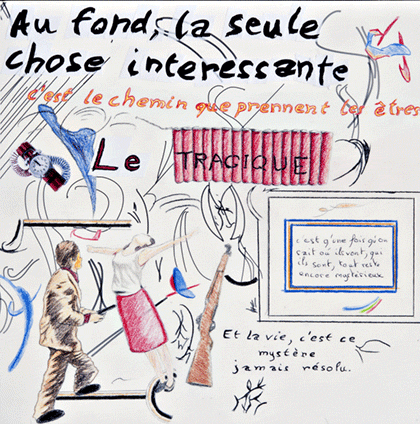 Au fond, la seule
chose interessante
c'est le chemin que prennent les êtres
Le TRAGIQUE
c'est q'une fois qu'on
sait où ils vont, qui
ils sont, tout reste
encore mystérieux
Et la vie, c'est ce
mystère
jamais résolu.